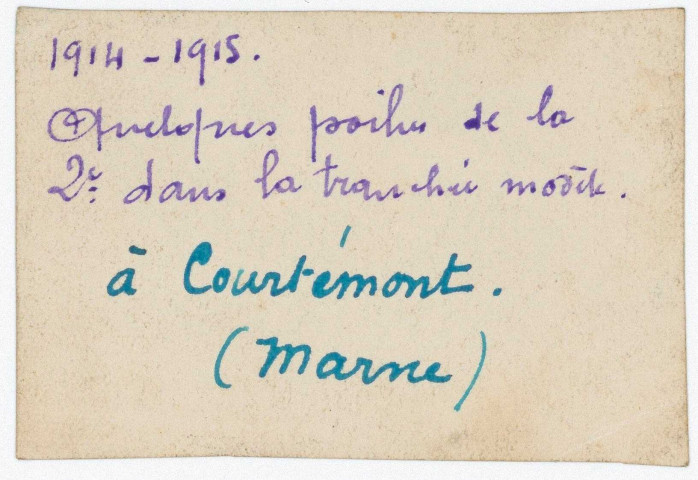 1914 - 1915.
Quelques poilus de la
2e. dans la tranchée modèle.
à Courtémont.
(Marne)